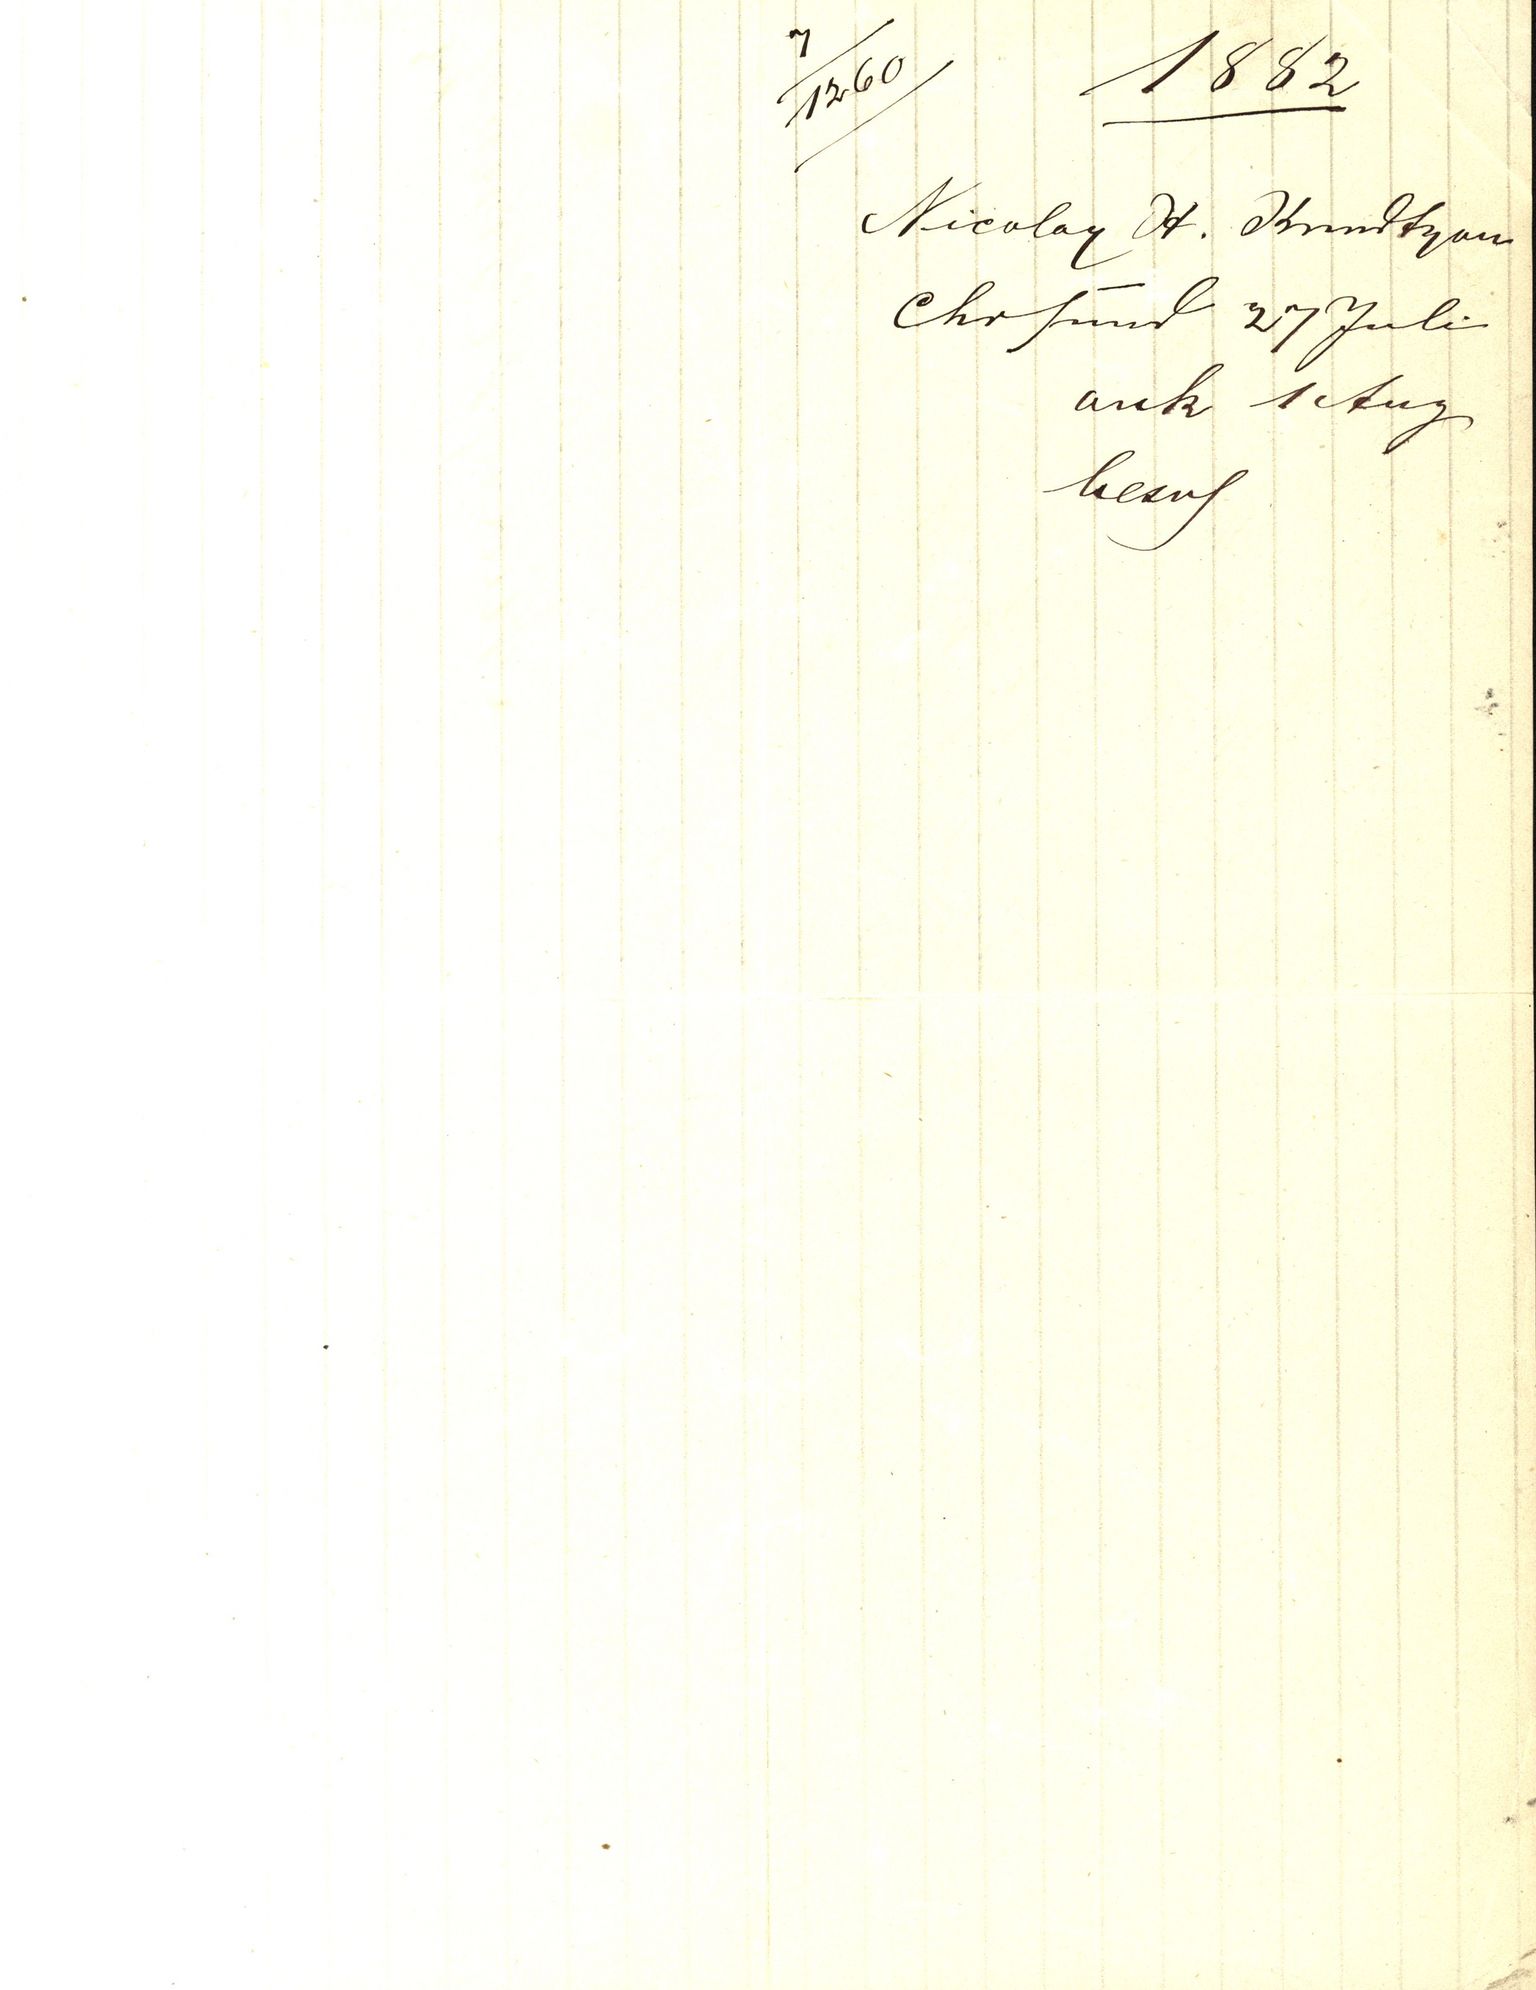 7/1260
1882
Nicolay H. Knudtzon
Chrsund 27 Juli
ank 1 Aug
besv